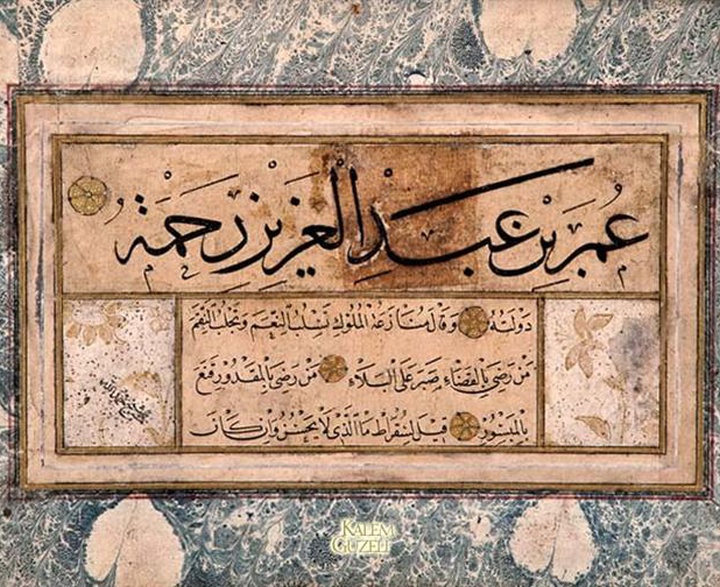 عُمَر بْن عَبْدِ الْعَزِيزِ رَحْمَةُ
دَوْلَتُهُ وَقَالَ مُنَازَعَةُ الْمُلُوكِ تَسْلُبُ النِّعَمَ وَتَجْلُبُ النِّقَمَ
مَنْ رَضِيَ بِالْقَضَاءِ صَبَرَ عَلَى الْبَلَاءِ مَنْ رَضِيَ بِالْمَقْدُورِ قَنَعَ
بِالْمَيْسُورِ قِيلَ لِسُقْرَاطَ مَا الَّذِي لَا يَحْسُنُ وَإِنْ كَانَ
KALEM GÜZELİ